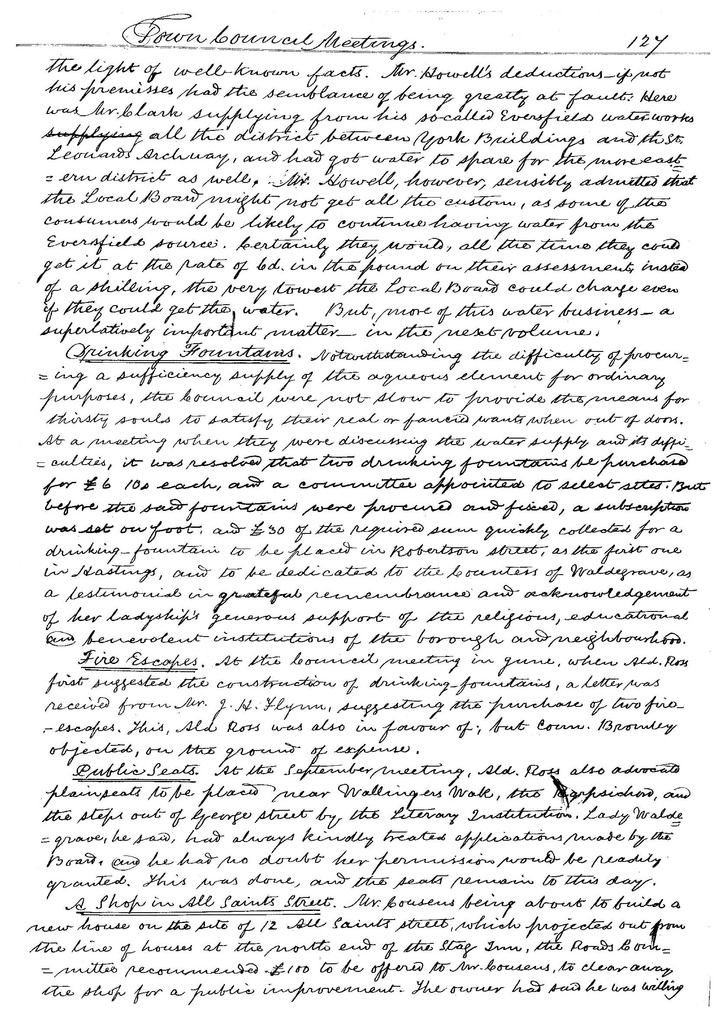 Town Council Meetings. 127
the light of well-known facts. Mr. Howell's deductions—if not
his premisses had the semblance of being greatly at fault: Here
was Mr. Clark supplying from his socalled Eversfield water works
supplying all the district between York Buildings and the St.
Leonards Archway, and had got water to spare for the more east=
=ern district as well. Mr. Howell, however, sensibly admitted that
the Local Board might not get all the custom, as some of the
consumers would be likely to continue having water from the
Eversfield source. Certainly they would, all the time they could
get it at the rate of 6d. in the pound on their assessments insted
of a shilling, the very lowest the Local Board could charge even
if they could get the water. But, more of this water business—a
superlatively important matter—in the next volume.
Drinking Fountains. Notwithstanding the difficulty of procur=
=ing a sufficiency supply of the aqueous element for ordinary
purposes, the Council were not slow to provide the means for
thirsty souls to satisfy their real or fancied wants when out of doors.
At a meeting when they were discussing the water supply and its diffi=
=culties, it was resolved that two drinking fountains be purchased
for £6 10s each, and a committee appointed to select sites. But
before the said fountains were procured and fixed, a subscription
was set on foot. and £30 of the required sum quickly collected for a
drinking-fountain to be placed in Robertson street, as the first one
in Hastings, and to be dedicated to the Countess of Waldegrave, as
a testimonial in grateful remembrance and acknowledgement
of her ladyship's generous support of the religious, educational
and benevolent institutions of the borough and neighbourhood.
Fire Escapes. At the Council meeting in June, when Ald. Ross
first suggested the construction of drinking-fountains, a letter was
received from Mr. J. H. Flynn, suggesting the purchase of two fire-
-escapes. This, Ald Ross was also in favour of; but Coun. Bromley
objected, on the ground of expense.
Public Seats. At the September meeting, Ald. Ross also advocated
plain seats to be placed near Wallingers Walk, the Harpsichord, and
the steps out of George street by the Literary Institution. Lady Walde=
=grave, he said, had always kindly treated applications made by the
Board, and he had no doubt her permission would be readily
granted. This was done, and the seats remain to this day.
A Shop in All Saints Street. Mr. Cousens being about to build a
new house on the site of 12 All Saints street, which projected out from
the line of houses at the north end of the Stag Inn, the Roads Com=
=mittee recommended £100 to be offered to Mr. Cousens, to clear away
the shop for a public improvement. The owner had said he was willing